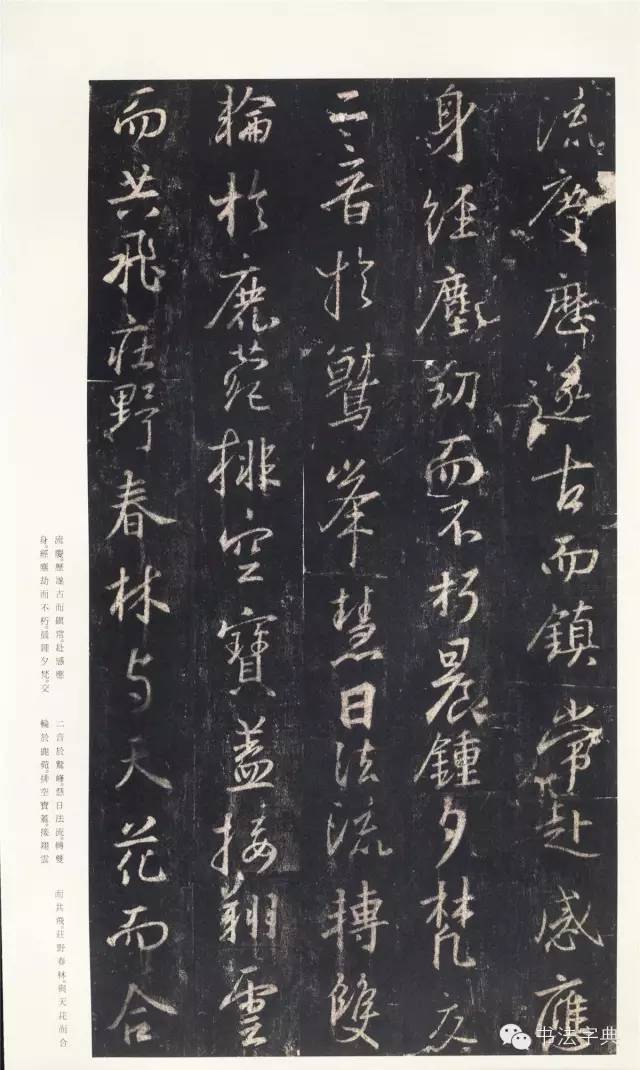 流慶歷遂古而鎮常赴感應
身經塵劫而不朽晨鍾夕梵交
二音於鷲峯慧日法流轉雙
輪於鹿菀排空寶蓋接翔雲
而共飛莊野春林与天花而合
流慶。歷遂古而鎮常。赴感應
身。經塵劫而不朽。晨鍾夕梵。交
二音於鷲峰。慧日法流。轉雙
輪於鹿菀。排空寶蓋。接翔雲
而共飛。莊野春林。與天花而合
书法字典